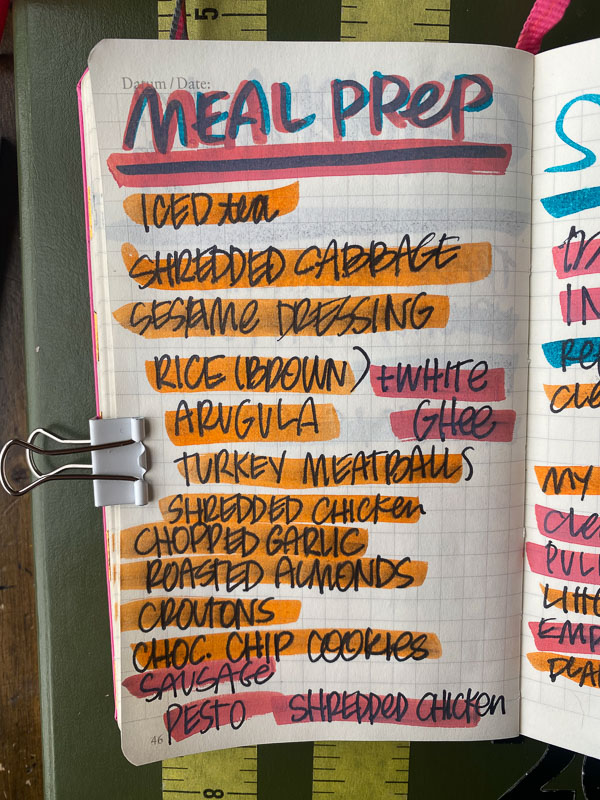 5
Datum / Date:
MEAL PREP
ICED tea
SHREDDED CABBAGE
SESAME DRESSING
RICE (BROWN) + WHITE
ARUGULA GHEE
TURKEY MEATBALLS
SHREDDED CHICKEN
CHOPPED GARLIC
ROASTED ALMONDS
CROUTONS
CHOC. CHIP COOKIES
SAUSAGE
PESTO SHREDDED CHICKEN
46
8
S
IN
REP
CLE
MY
CLE
PULL
EMP